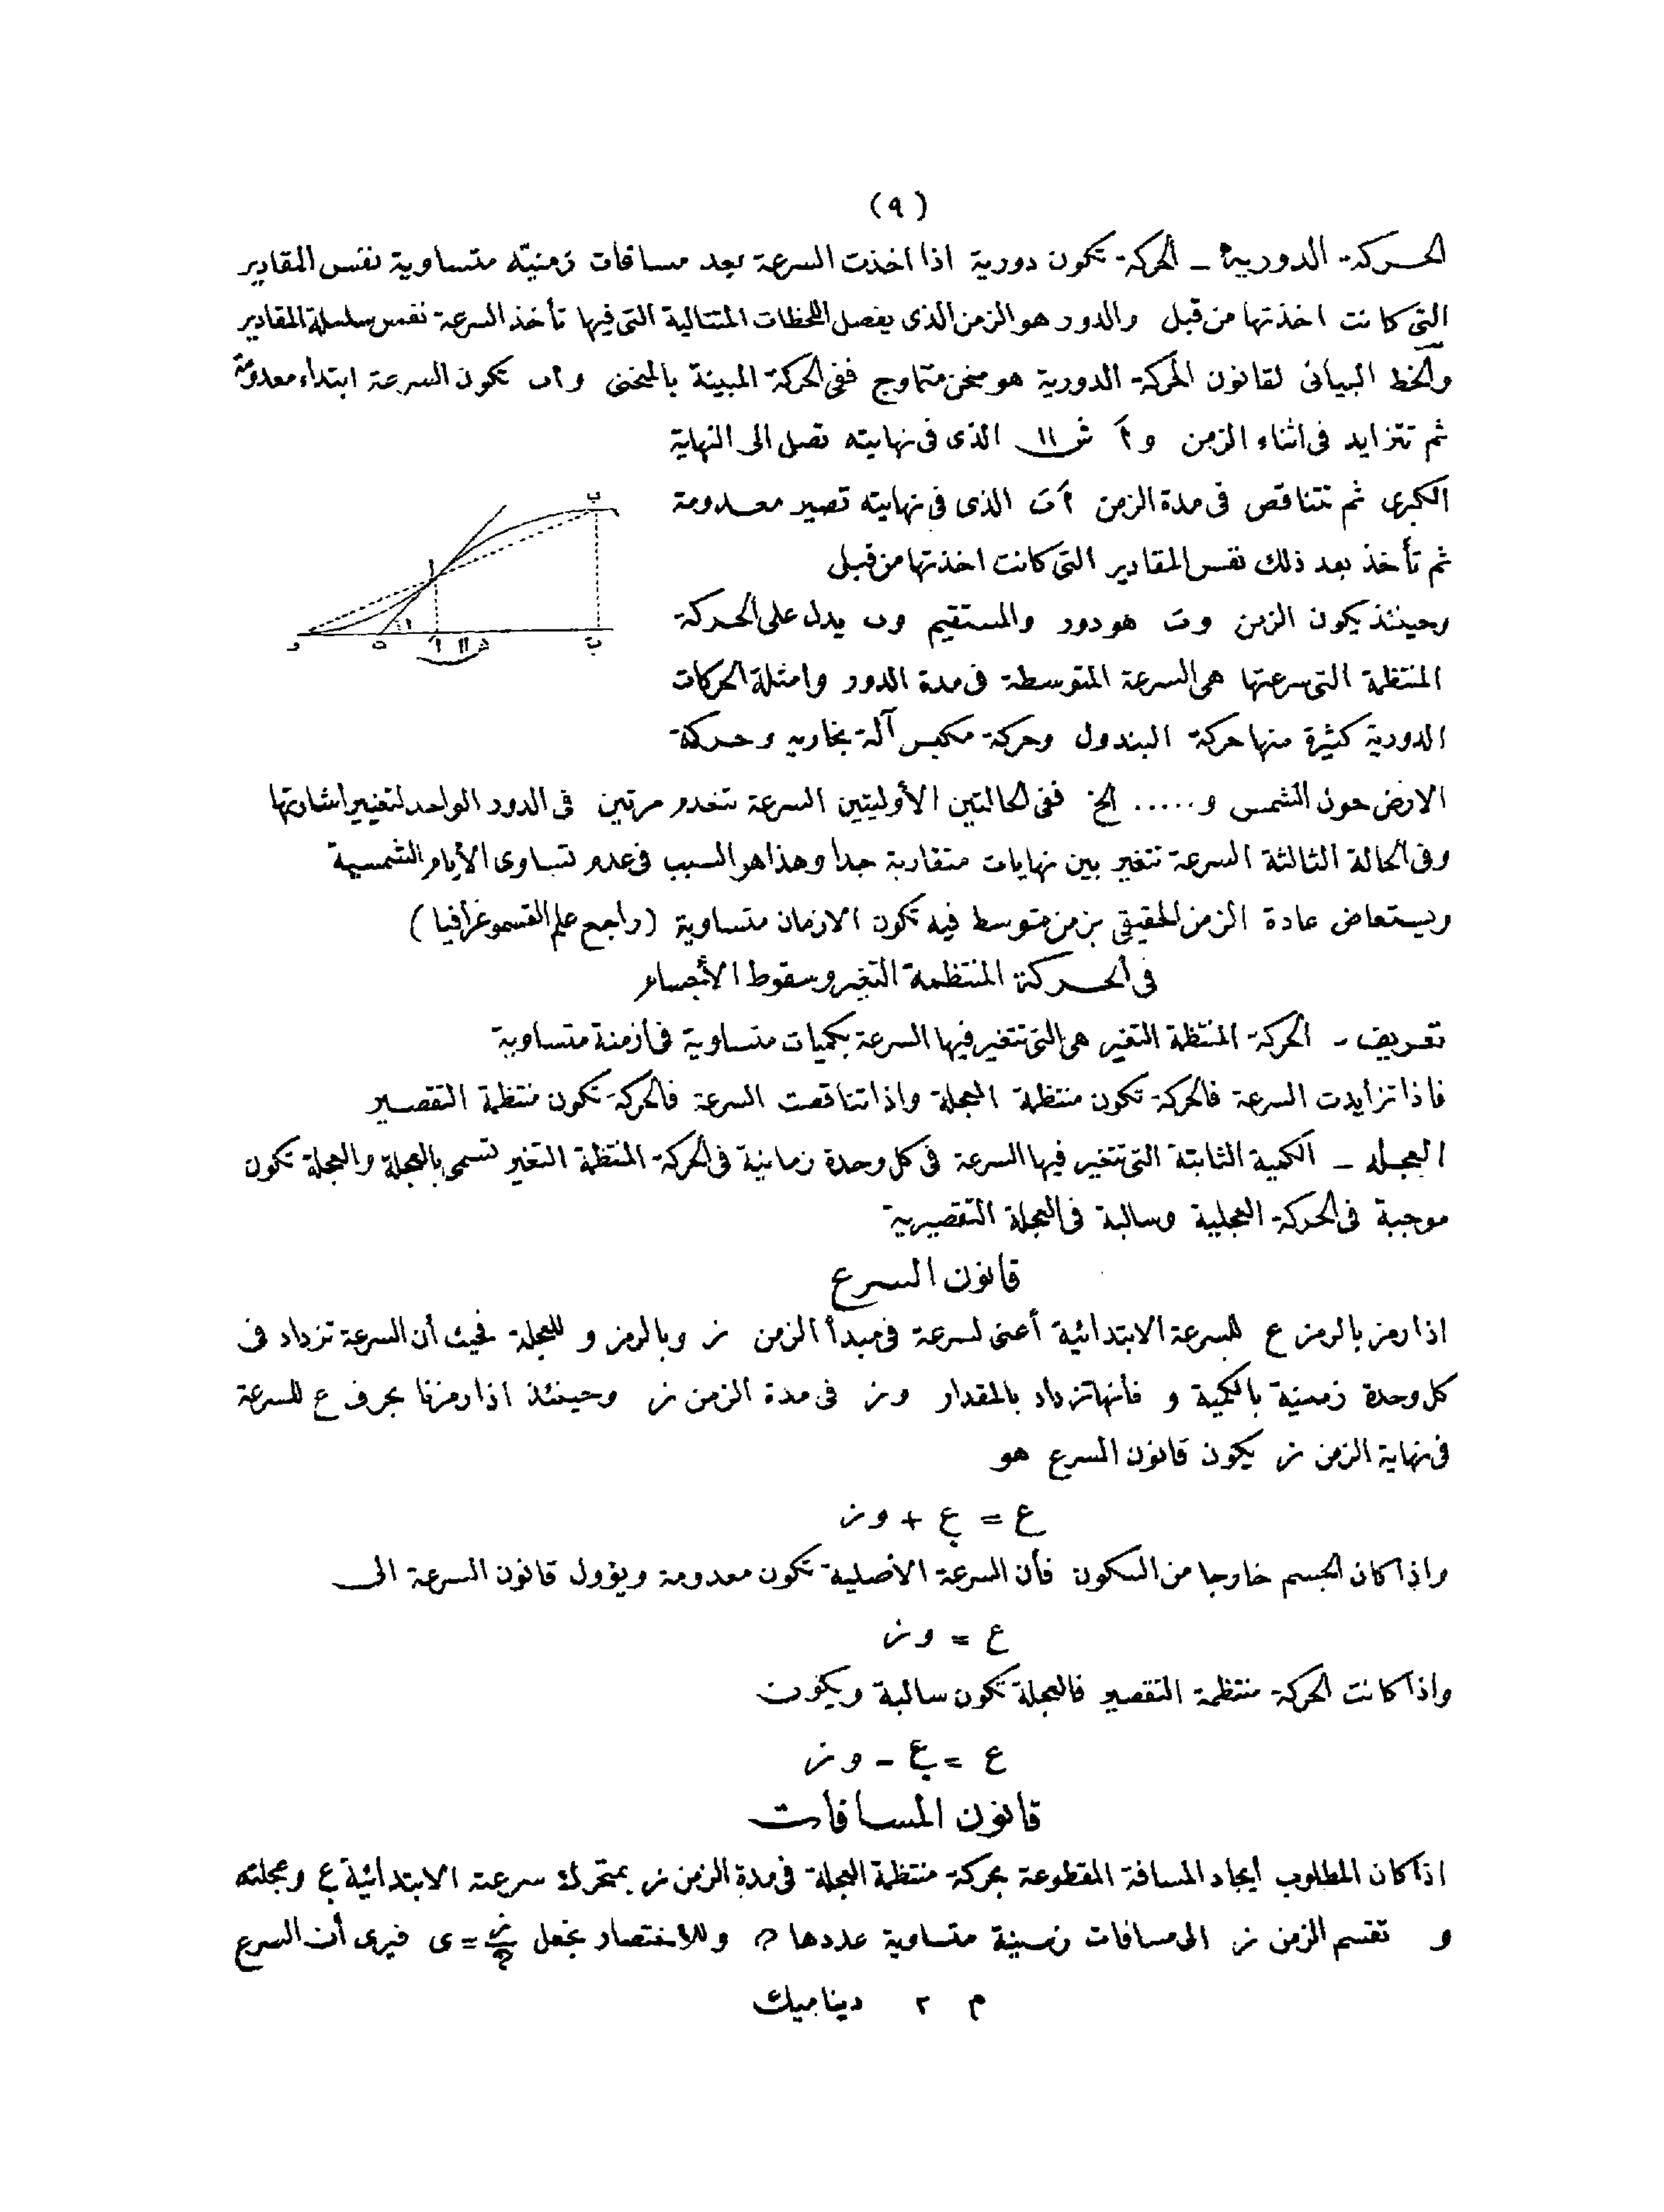 (٩)
الحركة الدورية ـ الحركة تكون دورية اذا اخذت السرعة بعد مسافات زمنية متساوية نفس المقادير
التى كانت اخذتها من قبل والدور هو الزمن الذى يفصل اللحظات المتتالية التى فيها تأخذ السرعة نفس سلسلة المقادير
والخط البيانى لقانون الحركة الدورية هو منحن متماوج ففى الحركة المبينة بالمنحنى و أ ب تكون السرعة ابتداء معدومة
ثم تتزايد فى اثناء الزمن و أَ ش ١١ الذى فى نهايته تصل الى النهاية
الكبرى ثم تتناقص فى مدة الزمن أَ بَ الذى فى نهايته تصير معدومة
ثم تأخذ بعد ذلك نفس المقادير التى كانت اخذتها من قبل
وحينئذ يكون الزمن و بَ هو دور والمستقيم و ب يدل على الحركة
المنتظمة التى سرعتها هى السرعة المتوسطة فى مدة الدور وامثلة الحركات
الدورية كثيرة منها حركة البندول وحركة مكبس آلة بخارية وحركة
الارض حول الشمس و ..... الخ ففى الحالتين الأوليتين السرعة تنعدم مرتين فى الدور الواحد لتغيير اشارتها
وفى الحالة الثالثة السرعة تتغير بين نهايات متقاربة جدا وهذا هو السبب فى عدم تساوى الأيام الشمسية
ويستعاض عادة الزمن الحقيقى بزمن متوسط فيه تكون الازمان متساوية (راجع علم القسموغرافيا)
ب
أ
١١
و ه أَ ش ١١ بَ
فى الحركة المنتظمة التغير وسقوط الأجسام
تعريف ـ الحركة المنتظمة التغير هى التى تتغير فيها السرعة بكميات متساوية فى أزمنة متساوية
فاذا تزايدت السرعة فالحركة تكون منتظمة العجلة واذا تناقصت السرعة فالحركة تكون منتظمة التقصير
العجله ـ الكمية الثابتة التى تتغير فيها السرعة فى كل وحدة زمانية فى الحركة المنتظمة التغير تسمى بالعجلة والعجلة تكون
موجبة فى الحركة العجلية وسالبة فى العجلة التقصيرية
قانون السرع
اذا رمز بالرمز ع للسرعة الابتدائية أعنى لسرعة فى مبدأ الزمن ز وبالرمز و للعجلة فحيث أن السرعة تزداد فى
كل وحدة زمنية بالكمية و فأنها تزداد بالمقدار و ز فى مدة الزمن ز وحينئذ اذا رمزنا بحرف ع للسرعة
فى نهاية الزمن ز يكون قانون السرع هو
ع = ع. + و ز
واذا كان الجسم خارجا من السكون فأن السرعة الأصلية تكون معدومة ويؤول قانون السرعة الى
ع = و ز
واذا كانت الحركة منتظمة التقصير فالعجلة تكون سالبة ويكون
ع = ع. - و ز
قانون المسافات
اذا كان المطلوب ايجاد المسافة المقطوعة بحركة منتظمة العجلة فى مدة الزمن ز بمتحرك سرعته الابتدائية ع. وعجلته
و تقسم الزمن ز الى مسافات زمنية متساوية عددها م وللاختصار نجعل ز/م = ى فيرى أن السرع
م ٢ ديناميك